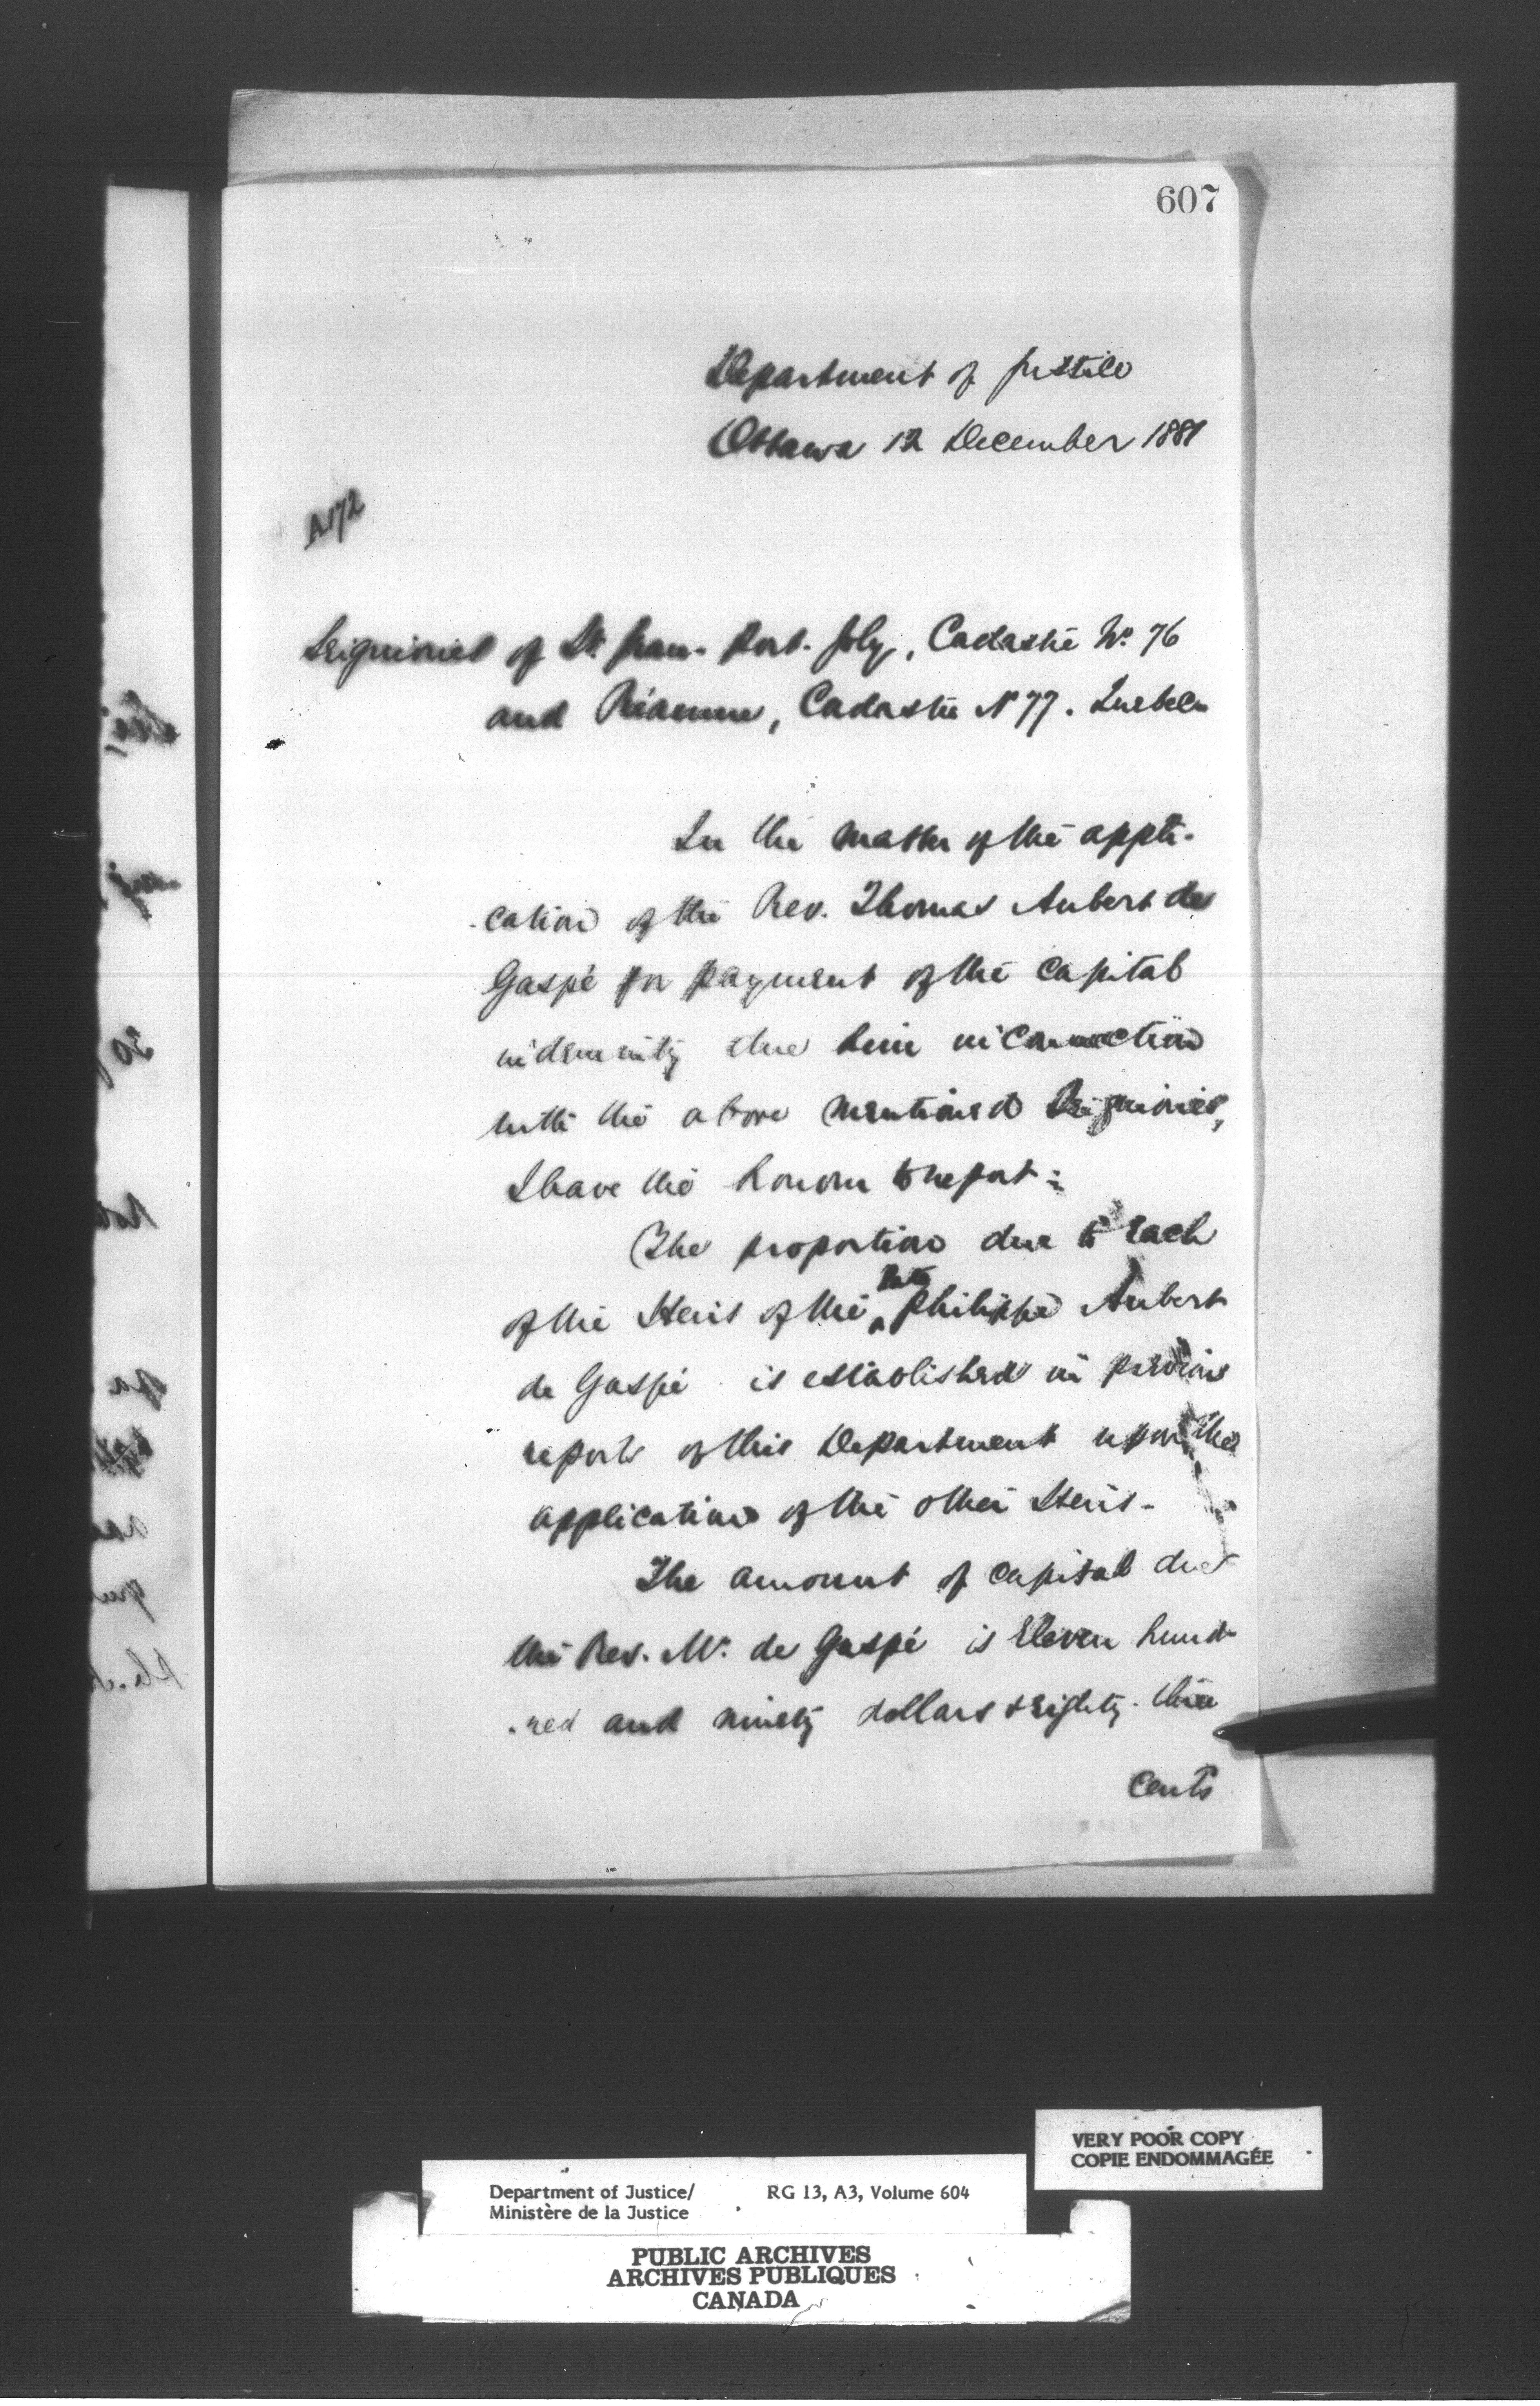 607
Department of Justice
Ottawa 12 December 1881
A172
Seigniories of St. Jean-Port-Joly, Cadastre No. 76
and Réaume, Cadastre No 77. Quebec
In the matter of the appli-
-cation of the Rev. Thomas Aubert de
Gaspé for payment of the capital
indemnity due him in connection
with the above mentioned Seigniories,
I have the honour to report:
The proportion due to each
of the Heirs of the late Philippe Aubert
de Gaspé is established in previous
reports of this Department upon the
application of the other Heirs-
The amount of capital due
the Rev. Mr. de Gaspé is Eleven hund-
-red and ninety dollars & eighty-three
cents
VERY POOR COPY
COPIE ENDOMMAGÉE
Department of Justice/ RG 13, A3, Volume 604
Ministère de la Justice
PUBLIC ARCHIVES
ARCHIVES PUBLIQUES
CANADA